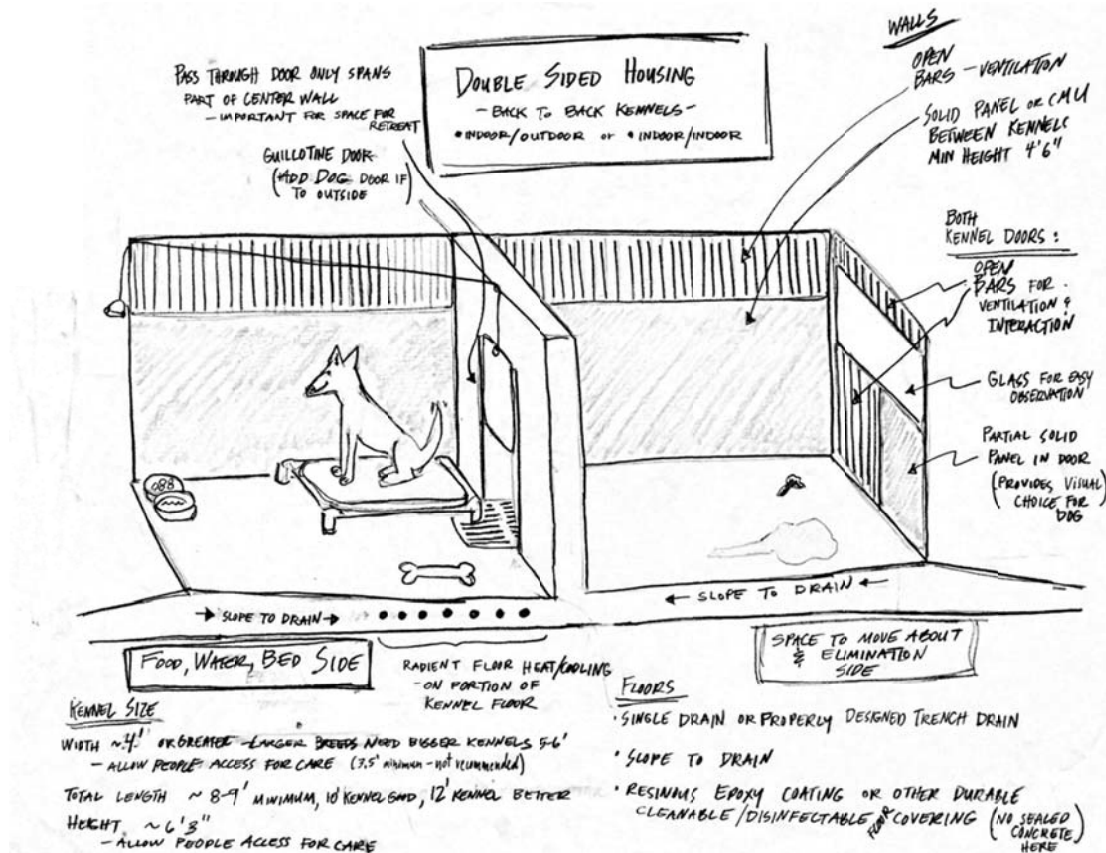 DOUBLE SIDED HOUSING
- BACK TO BACK KENNELS -
• INDOOR/OUTDOOR or • INDOOR/INDOOR
PASS THROUGH DOOR ONLY SPANS
PART OF CENTER WALL
- IMPORTANT FOR SPACE FOR
RETREAT
GUILLOTINE DOOR
(ADD DOG DOOR IF
TO OUTSIDE)
WALLS
OPEN
BARS - VENTILATION
SOLID PANEL OR CMU
BETWEEN KENNELS
MIN HEIGHT 4'6"
BOTH
KENNEL DOORS:
OPEN
BARS FOR
VENTILATION &
INTERACTION
GLASS FOR EASY
OBSERVATION
PARTIAL SOLID
PANEL IN DOOR
(PROVIDES VISUAL
CHOICE FOR
DOG)
→ SLOPE TO DRAIN →
← SLOPE TO DRAIN ←
FOOD, WATER, BED SIDE
RADIENT FLOOR HEAT/COOLING
- ON PORTION OF
KENNEL FLOOR
SPACE TO MOVE ABOUT
& ELIMINATION
SIDE
KENNEL SIZE
WIDTH ~4' OR GREATER - LARGER BREEDS NEED BIGGER KENNELS 5-6'
- ALLOW PEOPLE ACCESS FOR CARE (3.5' minimum - not recommended)
TOTAL LENGTH ~ 8-9' MINIMUM, 10' KENNEL GOOD, 12' KENNEL BETTER
HEIGHT ~6'3"
- ALLOW PEOPLE ACCESS FOR CARE
FLOORS
• SINGLE DRAIN OR PROPERLY DESIGNED TRENCH DRAIN
• SLOPE TO DRAIN
• RESINOUS EPOXY COATING OR OTHER DURABLE
CLEANABLE/DISINFECTABLE FLOOR COVERING (NO SEALED
CONCRETE
HERE)